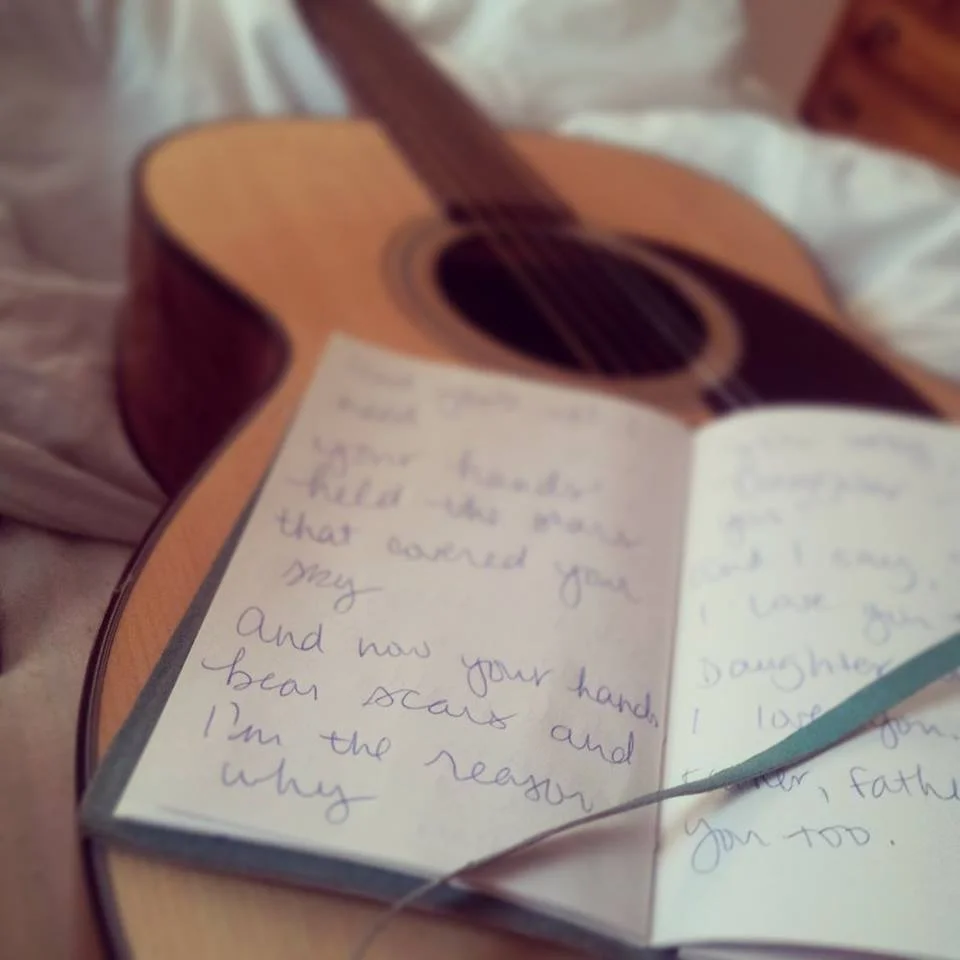 your hands
held the stars
that covered your
sky
And now your hands
bear scars and
I'm the reason
why
and I say,
I love you
Daughter
I love you.
Father, Fathe
you too.